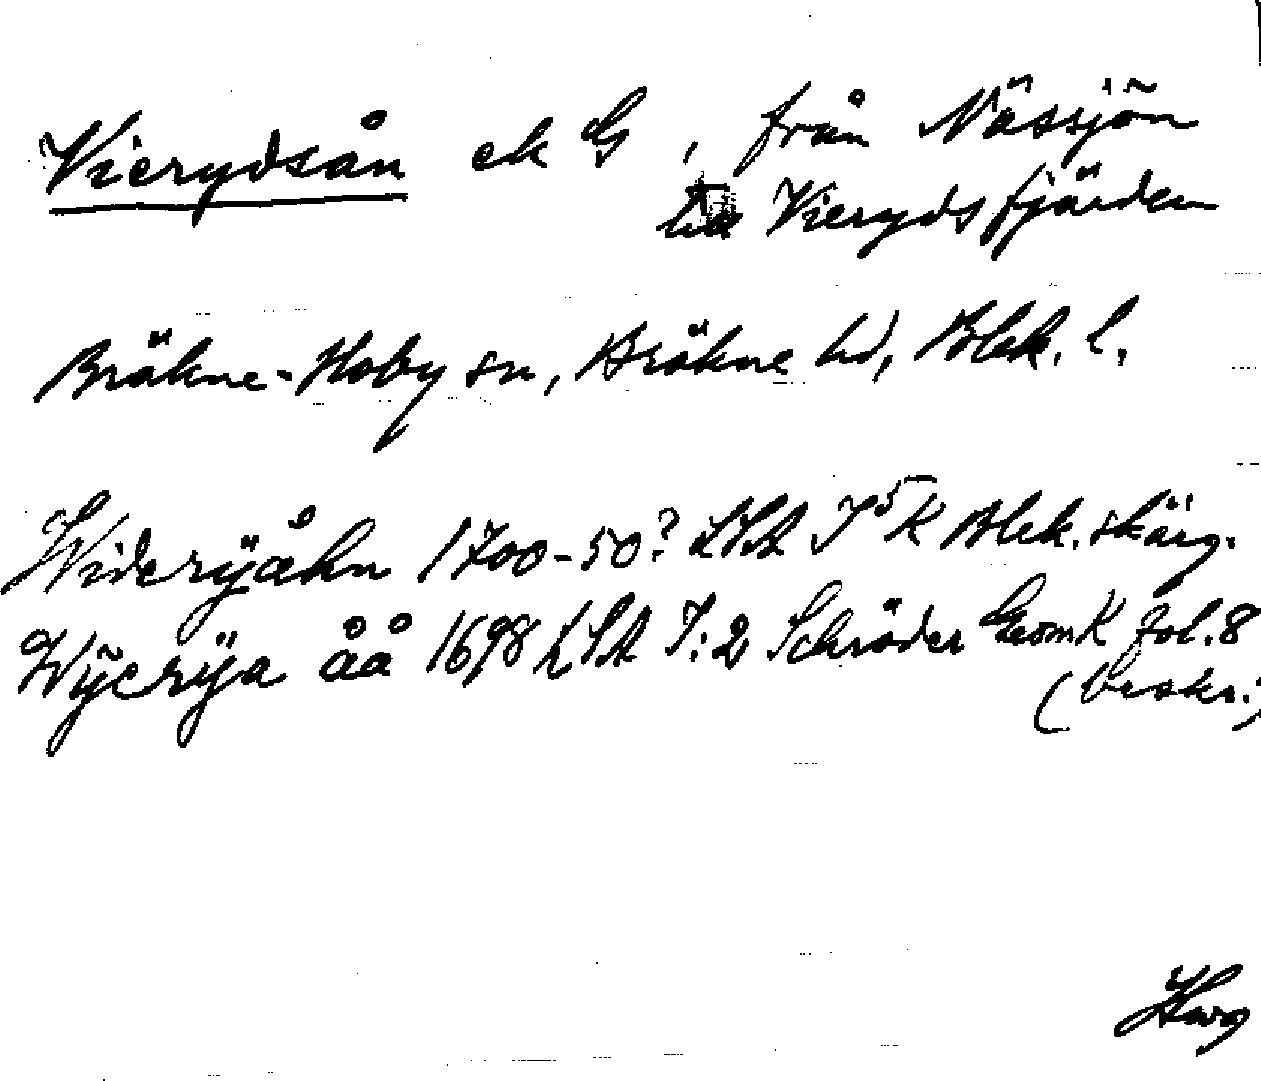 Vierydsån ek G, från Nässjön
till Vierydsfjärden
Bräkne-Hoby sn, Bräkne hd, Blek. l.
Wideryåhn 1700-50? LSA Blek. skärg.
Wÿerÿa åå 1698 LSA I:2 Schröder GeomK fol. 8
(beskr.)